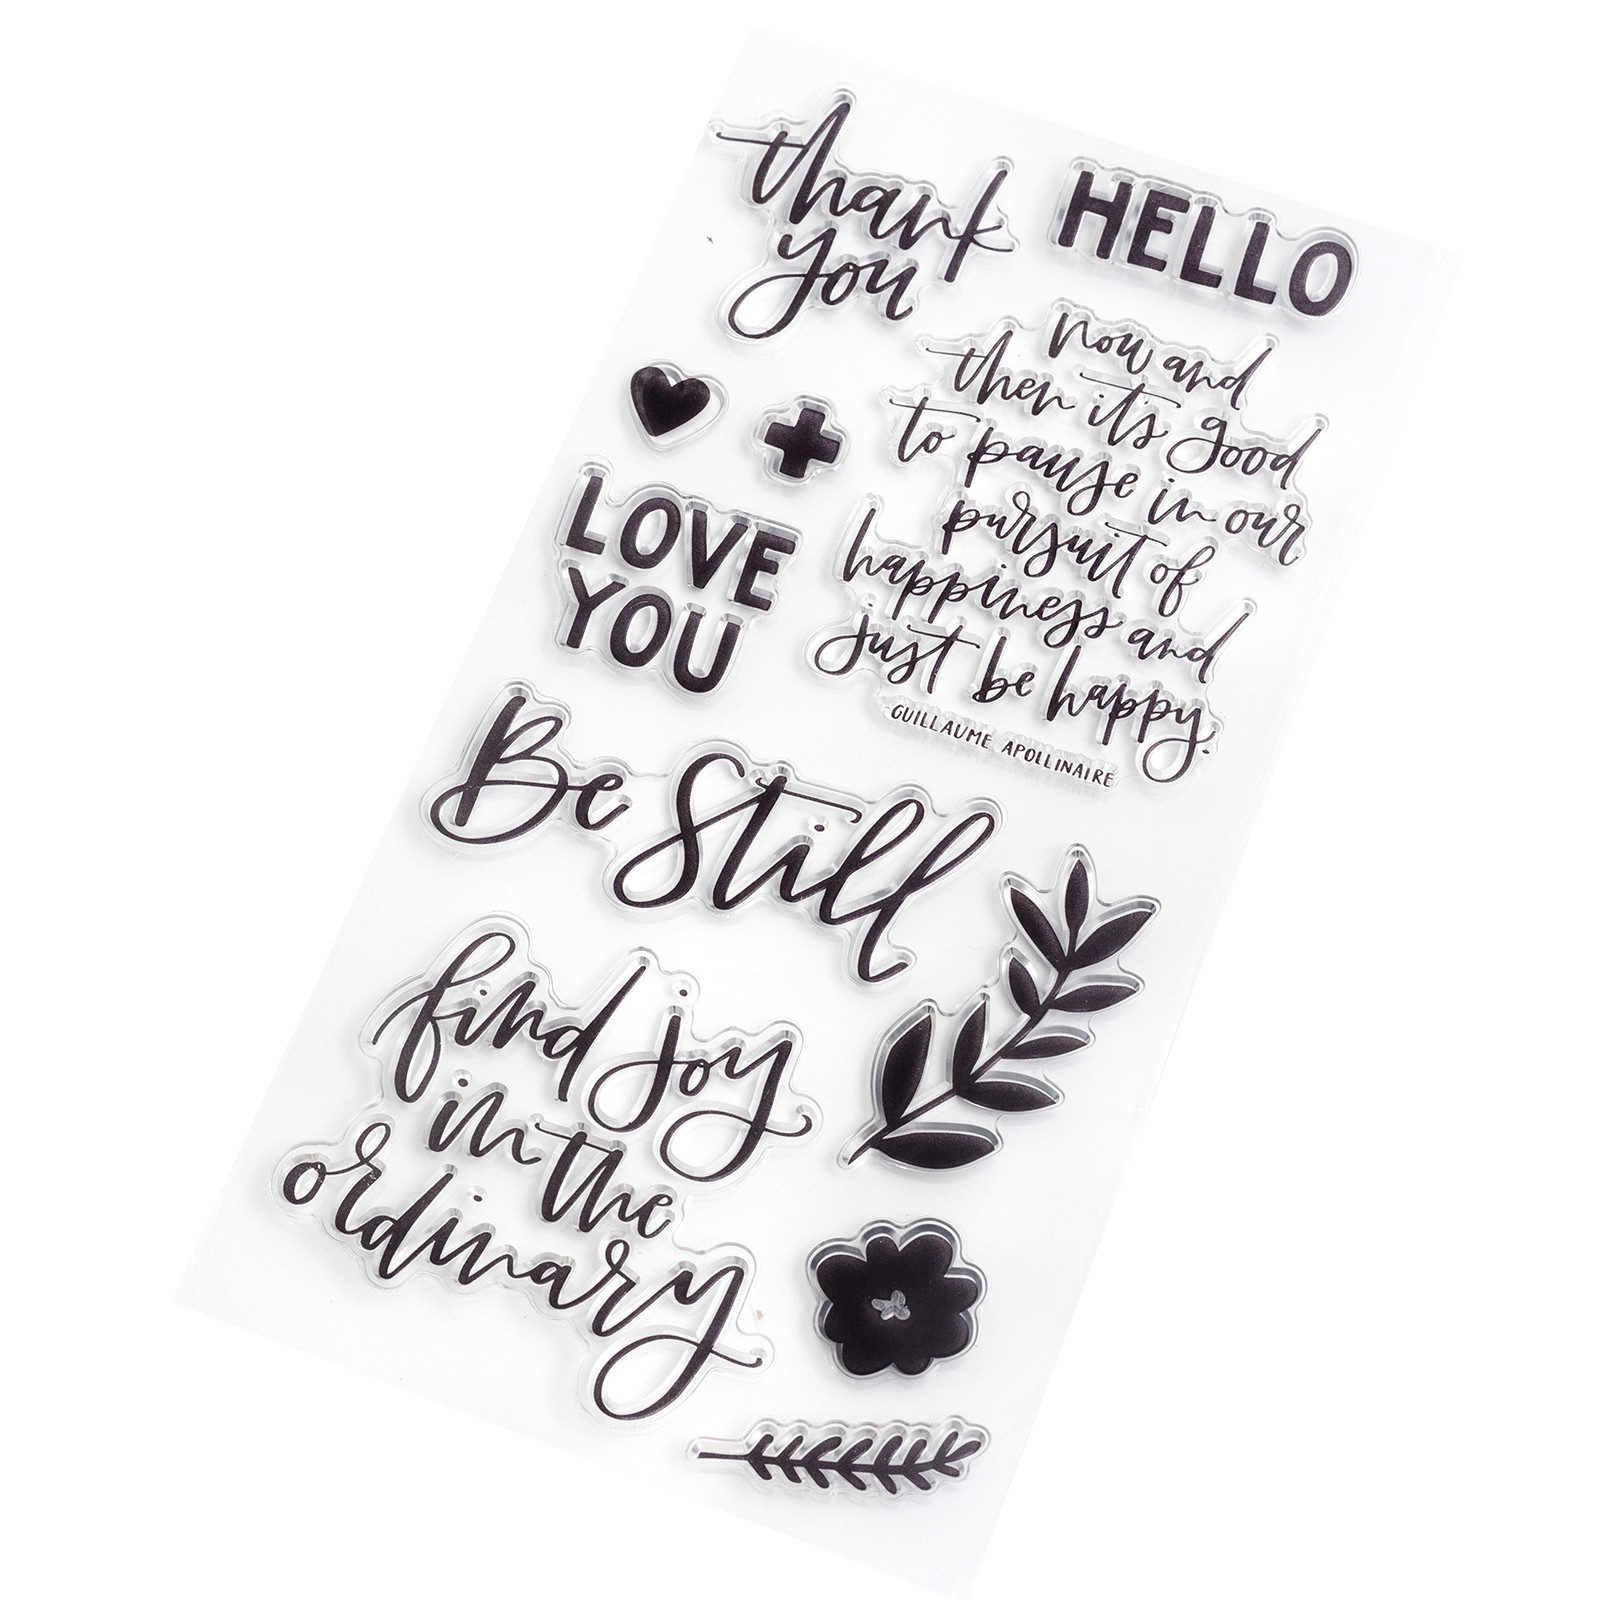 thank
you
HELLO
now and
then it's good
to pause in our
pursuit of
happiness and
just be happy.
-GUILLAUME APOLLINAIRE
LOVE
YOU
Be Still
find joy
in the
ordinary